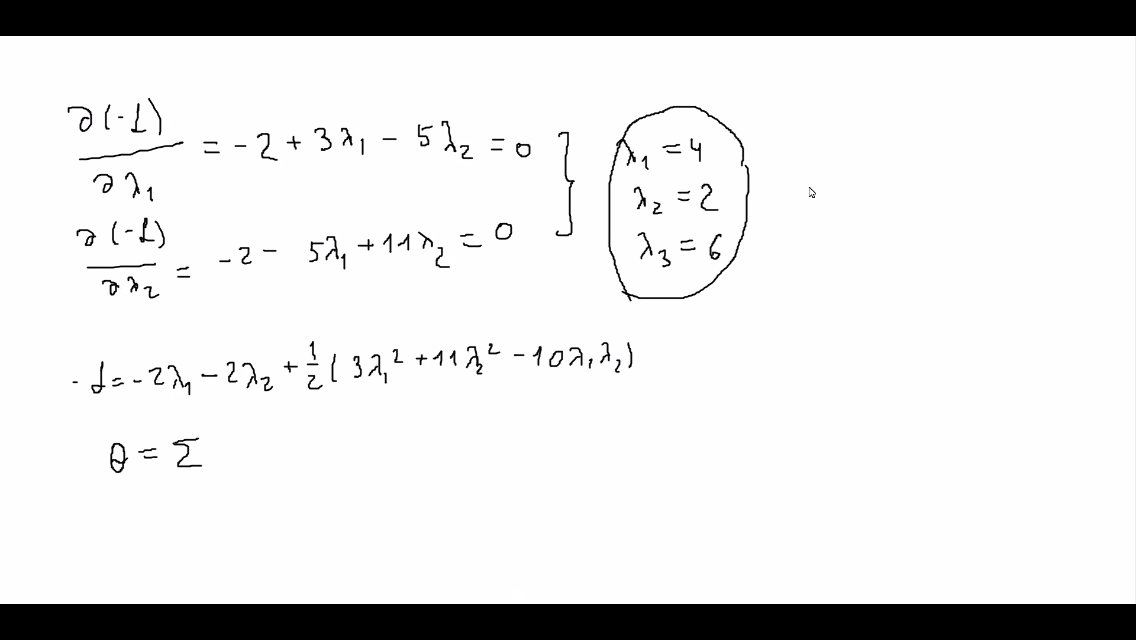 ∂(-L)/∂λ₁ = -2 + 3λ₁ - 5λ₂ = 0
∂(-L)/∂λ₂ = -2 - 5λ₁ + 11λ₂ = 0
λ₁ = 4
λ₂ = 2
λ₃ = 6
-L = -2λ₁ - 2λ₂ + 1/2 (3λ₁² + 11λ₂² - 10λ₁λ₂)
θ = Σ